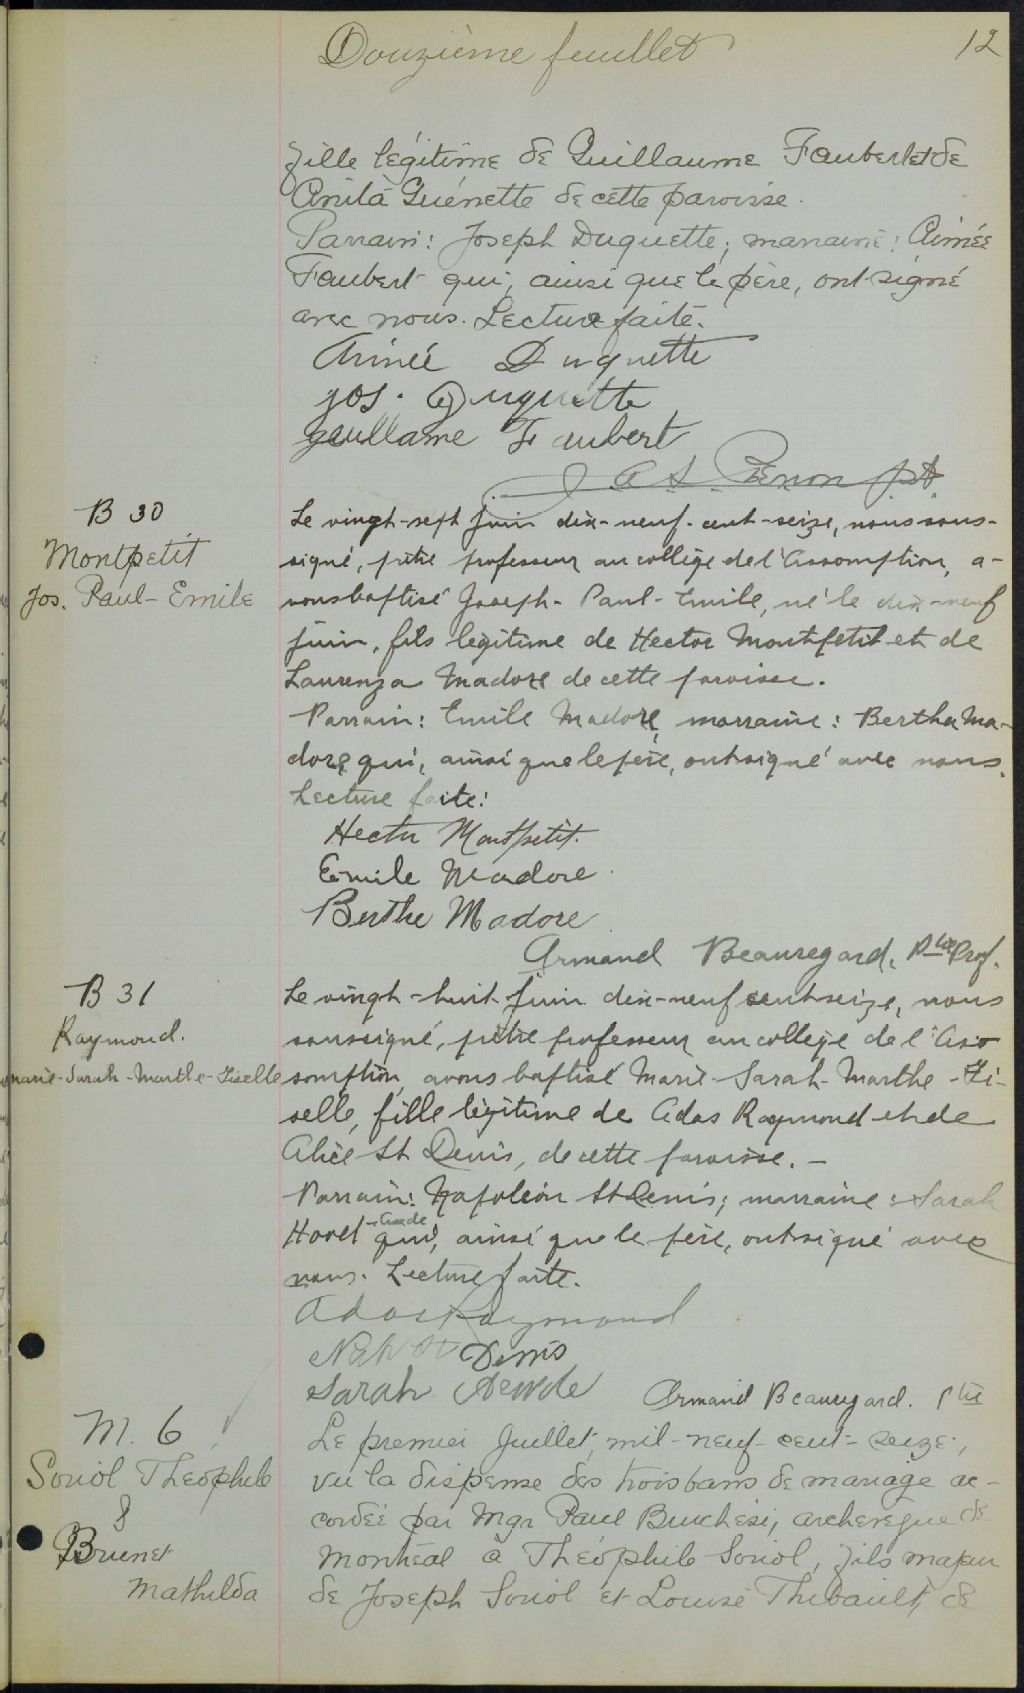 Douzième feuillet
12
fille légitime de Guillaume Faubert et de
Anita Guénette de cette paroisse.
Parrain: Joseph Duquette; marraine: Aimée
Faubert qui, ainsi que le père, ont signé
avec nous. Lecture faite.
Aimée Duquette
Jos. Duquette
Guillame Faubert
B 30
Montpetit
Jos. Paul-Emile
Le vingt-sept juin dix-neuf-cent-seize, nous sous-
signé, prêtre professeur au collège de l'Assomption, a-
vons baptisé Joseph-Paul-Emile, né le dix-neuf
juin, fils légitime de Hector Montpetit et de
Laurenza Madore de cette paroisse.
Parrain: Emile Madore, marraine: Bertha Ma-
dore qui, ainsi que le père, ont signé avec nous.
Lecture faite:
Hector Montpetit.
Emile Madore
Berthe Madore
Armand Beauregard, Ptre Prof.
B 31
Raymond.
Marie-Sarah-Marthe-Giselle
Le vingt-huit juin dix-neuf cent seize, nous
soussigné, prêtre professeur au collège de l'As-
somption, avons baptisé Marie-Sarah-Marthe-Gi-
selle, fille légitime de Adas Raymond et de
Alice St Denis, de cette paroisse. -
Parrain: Napoléon St Denis; marraine: Sarah
qui, ainsi que le père, ont signé avec
nous. Lecture faite.
Adas Raymond
Nap St Denis
Sarah
Armand Beauregard. Ptre
M. 6
Soriol Théophile
&
Brunet
Mathilda
Le premier Juillet, mil-neuf-cent-seize,
vu la dispense des trois bans de mariage ac-
cordée par Mgr Paul Bruchési, archevêque de
Montréal à Théophile Soriol, fils majeur
de Joseph Soriol et Louise Thibault, de